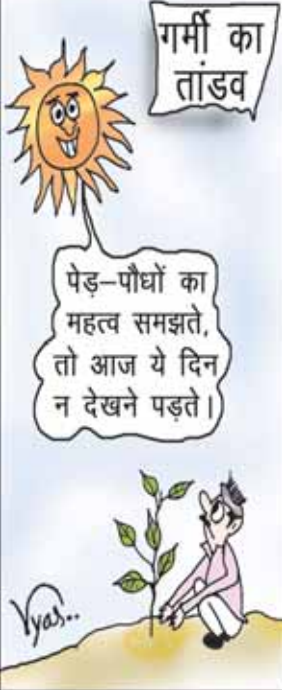 गर्मी का
तांडव
पेड़-पौधों का
महत्व समझते,
तो आज ये दिन
न देखने पड़ते।
Vyas..